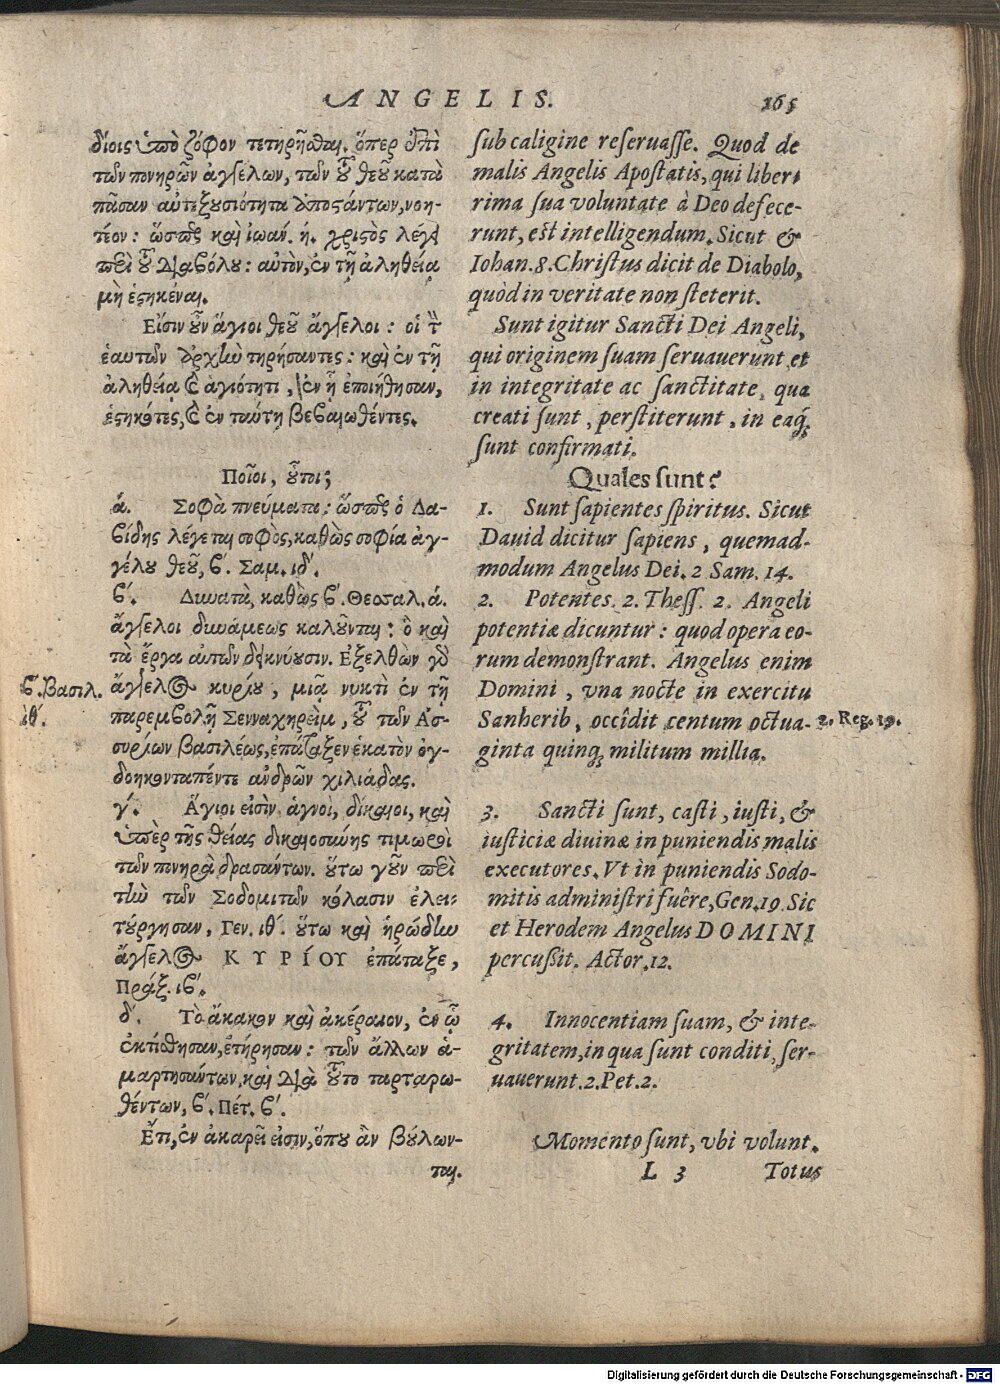 ANGELIS. 165
δίοις ὑπὸ ζόφον τετηρῆσθαι. ὅπερ ἐπὶ
τῶν πονηρῶν ἀγγέλων, τῶν τοῦ θεοῦ κατὰ
πᾶσαν αὐτεξουσιότητα ἀποστάντων, νοη-
τέον: ὥσπερ καὶ ἰωάν. ή. χριστὸς λέγει
περὶ τοῦ Διαβόλου: αὐτὸν, ἐν τῇ ἀληθείᾳ
μὴ ἑστηκέναι.
Εἰσὶν οὖν ἅγιοι θεοῦ ἄγγελοι: οἱ τὴν
ἑαυτῶν ἀρχὴν τηρήσαντες: καὶ ἐν τῇ
ἀληθείᾳ καὶ ἁγιότητι, ἐν ᾗ ἐποιήθησαν,
ἑστηκότες, καὶ ἐν ταύτῃ βεβαιωθέντες.
Ποῖοι, οὗτοι;
ά. Σοφὰ πνεύματα: ὥσπερ ὁ Δα-
βίδης λέγεται σοφὸς, καθὼς σοφία ἀγ-
γέλου θεοῦ, β΄. Σαμ. ιδ΄.
β΄. Δυνατὰ, καθὼς β΄. Θεσσαλ. ά.
ἄγγελοι δυνάμεως καλοῦνται: ὃ καὶ
τὰ ἔργα αὐτῶν δεικνύουσιν. Ἐξελθὼν γὸ
ἄγγελος κυρίου, μιᾷ νυκτὶ ἐν τῇ
παρεμβολῇ Σενναχηρεὶμ, τοῦ τῶν Ἀσ-
συρίων βασιλέως, ἐπάταξεν ἑκατὸν ὀγ-
δοηκονταπέντε ἀνδρῶν χιλιάδας.
γ΄. Ἅγιοι εἰσὶν, ἁγνοὶ, δίκαιοι, καὶ
ὑπὲρ τῆς θείας δικαιοσύνης τιμωροὶ
τῶν πονηρὰ δρασάντων. οὕτω γοῦν περὶ
τὴν τῶν Σοδομιτῶν κόλασιν ἐλει-
τούργησαν, Γεν. ιθ΄. οὕτω καὶ ἡρώδην
ἄγγελος ΚΥΡΊΟΥ ἐπάταξε,
Πράξ. ιβ΄.
δ΄. Τὸ ἄκακον καὶ ἀκέραιον, ἐν ᾧ
ἐκτίσθησαν, ἐτήρησαν: τῶν ἄλλων ἁ-
μαρτησάντων, καὶ Διὰ τοῦτο ταρταρω-
θέντων, β΄. Πέτ. β΄.
Ἔτι, ἐν ἀκαρεῖ εἰσιν, ὅπου ἂν βούλων-
ται.
β΄. Βασιλ.
ιθ΄.
sub caligine reseruasse. Quod de
malis Angelis Apostatis, qui liber-
rima sua voluntate à Deo defece-
runt, est intelligendum. Sicut &
Iohan. 8. Christus dicit de Diabolo,
quòd in veritate non steterit.
Sunt igitur Sancti Dei Angeli,
qui originem suam seruauerunt et
in integritate ac sanctitate, qua
creati sunt, perstiterunt, in eaq́;
sunt confirmati.
Quales sunt?
1. Sunt sapientes spiritus. Sicut
Dauid dicitur sapiens, quemad-
modum Angelus Dei. 2 Sam. 14.
2. Potentes. 2. Thess. 2. Angeli
potentiæ dicuntur: quod opera eo-
rum demonstrant. Angelus enim
Domini, vna nocte in exercitu
Sanherib, occîdit centum octua-
ginta quinq; militum millia.
2. Reg. 19.
3. Sancti sunt, casti, iusti, &
iusticiæ diuinæ in puniendis malis
executores. Vt in puniendis Sodo-
mitis administri fuêre, Gen. 19. Sic
et Herodem Angelus DOMINI
percussit. Actor. 12.
4. Innocentiam suam, & inte-
gritatem, in qua sunt conditi, ser-
uauerunt. 2. Pet. 2.
Momento sunt, vbi volunt.
L 3 Totus
Digitalisierung gefördert durch die Deutsche Forschungsgemeinschaft - DFG